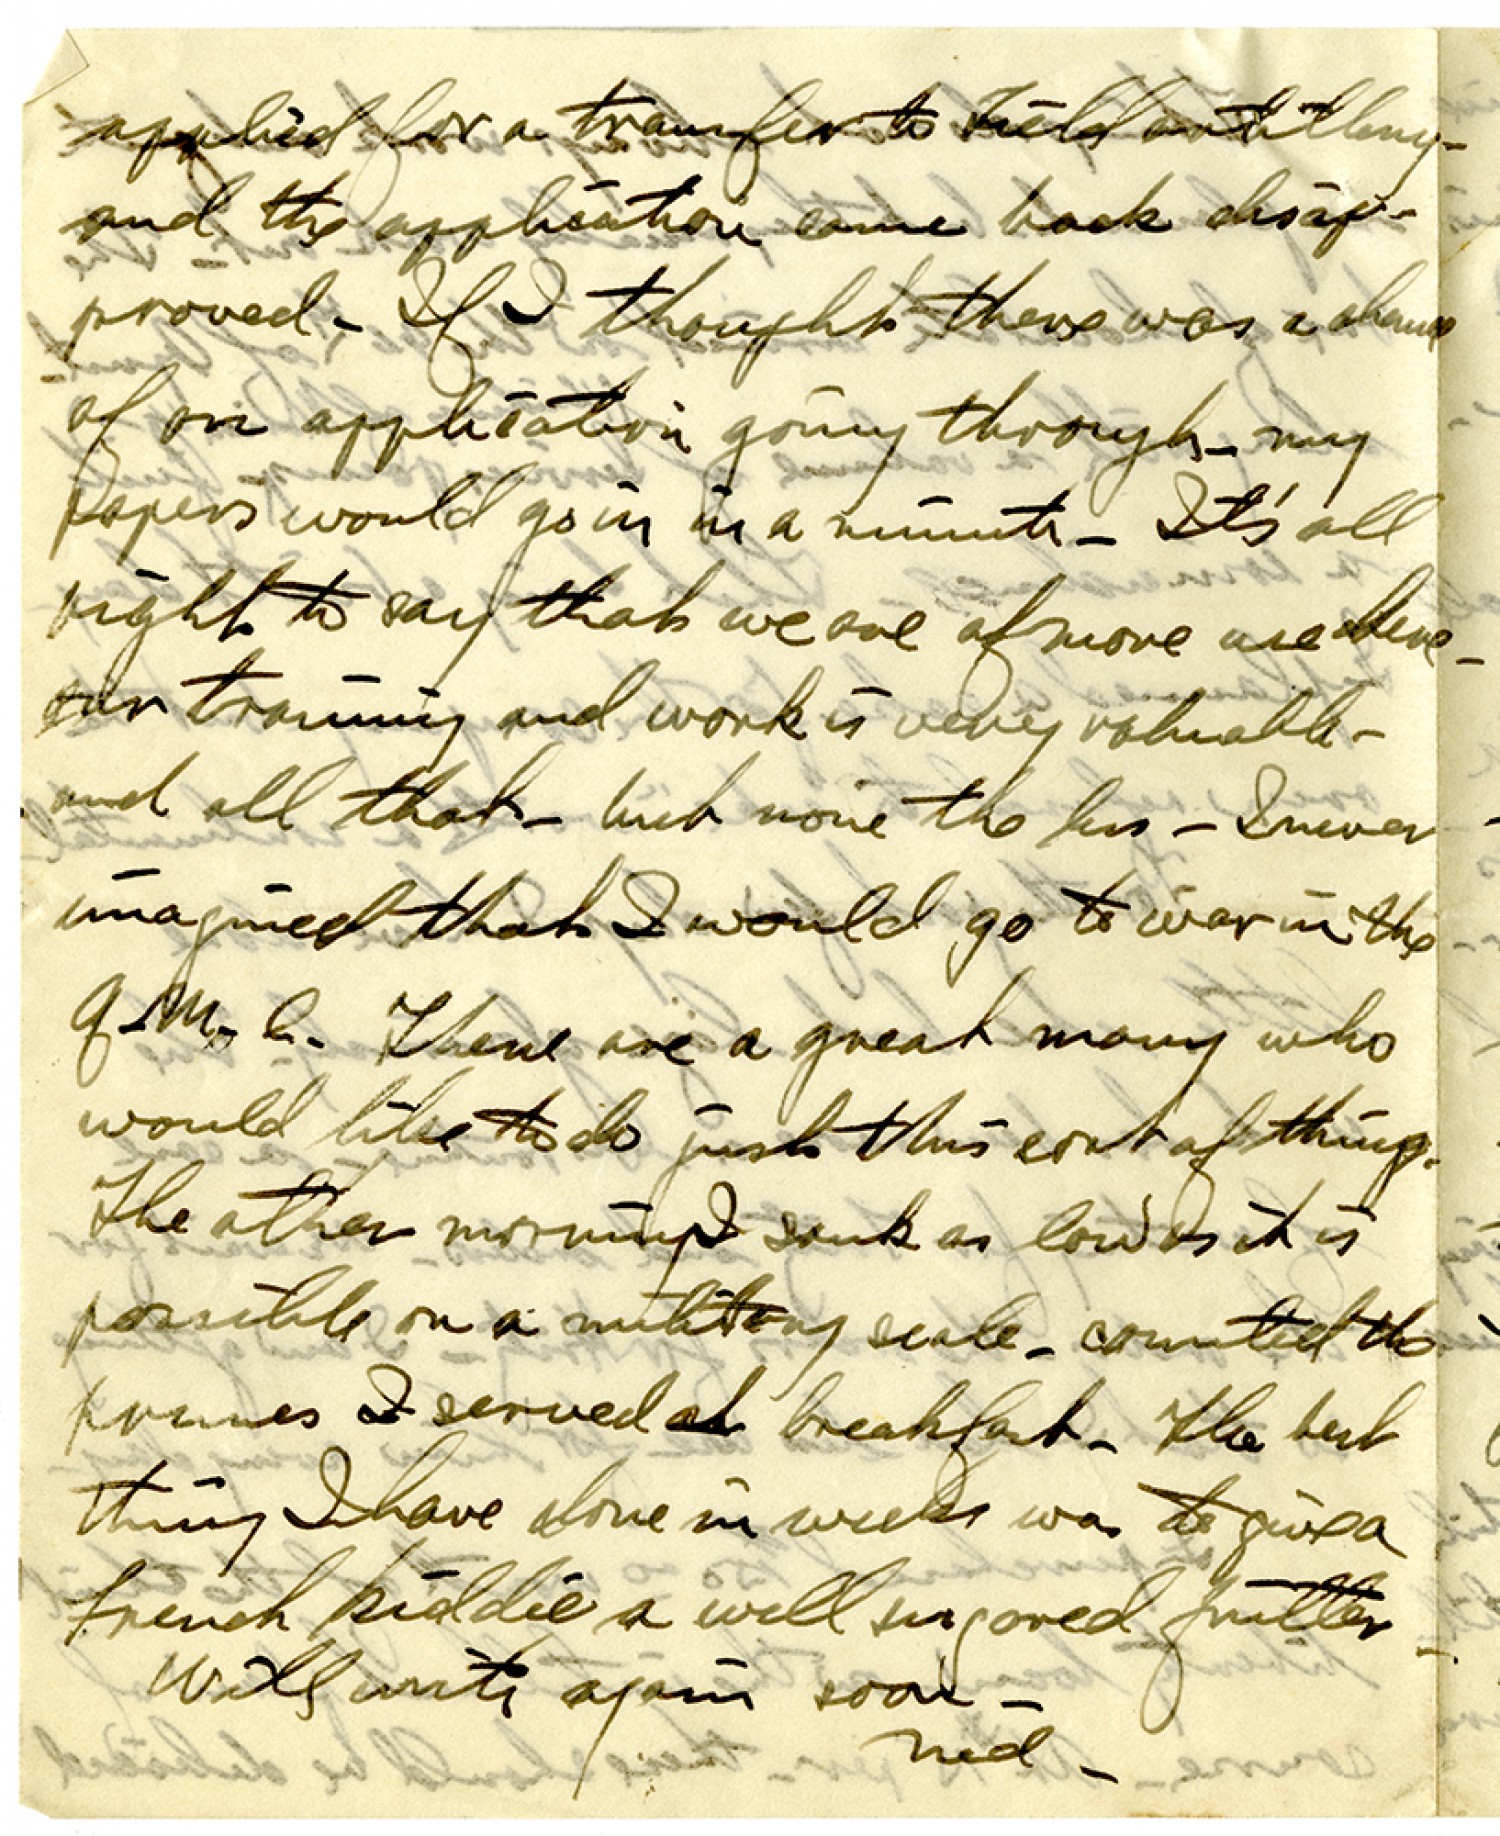 applied for a transfer to Field artillery-
and the application came back disap-
proved- If I thought there was a chance
of an application going through- my
papers would go in in a minute- It's all
right to say that we are of more use here-
our training and work is very valuable-
and all that- but none the less- I never
imagined that I would go to war in the
Q-M-C. There are a great many who
would like to do just this sort of thing.
The other morning I sank as low as it is
possible on a military scale- counted the
prunes I served at breakfast- The best
thing I have done in weeks was to give a
French kiddie a well sugared fritter-
Will write again soon-
Ned-